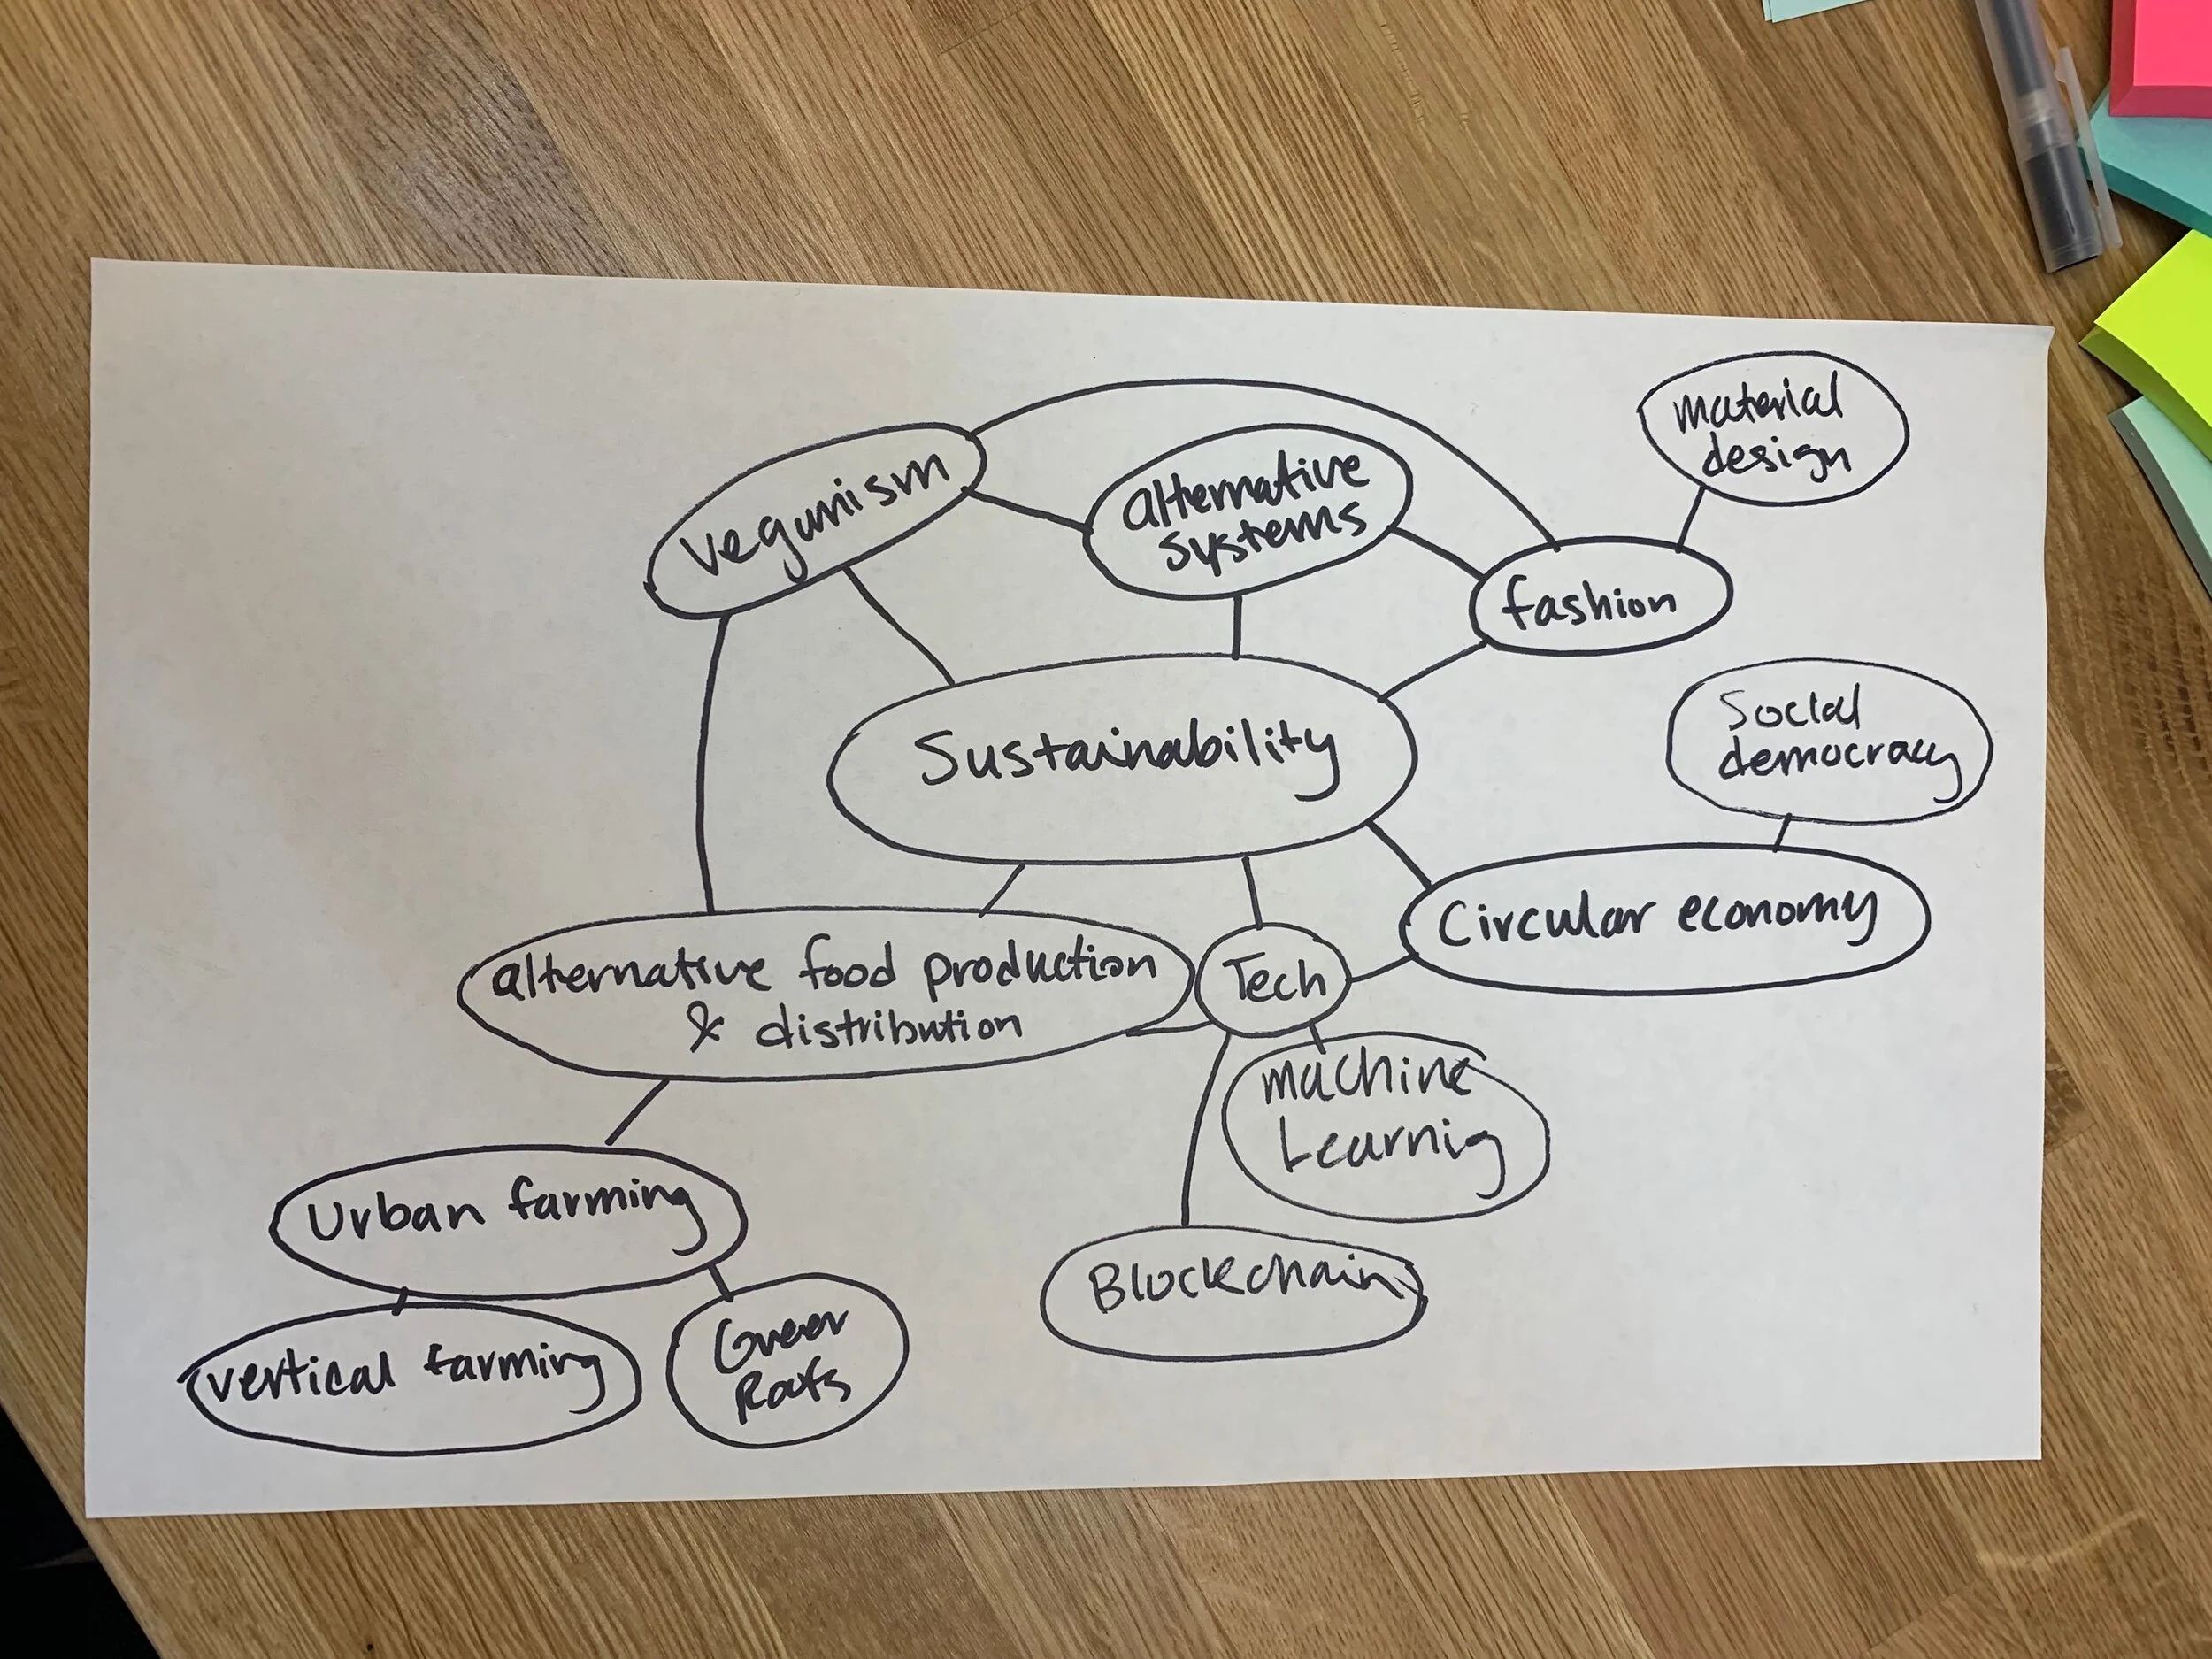 veganism
alternative
systems
material
design
fashion
Sustainability
Social
democracy
Circular economy
alternative food production
& distribution
Tech
machine
Learnig
Urban farming
Blockchain
vertical farming
Green
Roofs